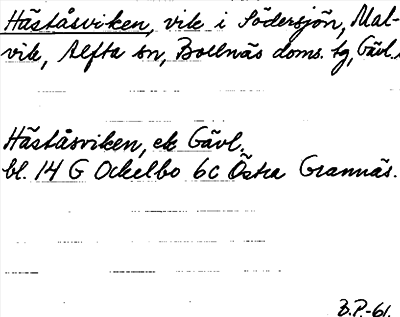 Häståsviken, vik i Södersjön, Mal-
vik, Alfta sn, Bollnäs doms. tg, Gävl.
Häståsviken, ek Gävl.
bl. 14 G Ockelbo 6c Östra Grannäs.
B.P.-61.